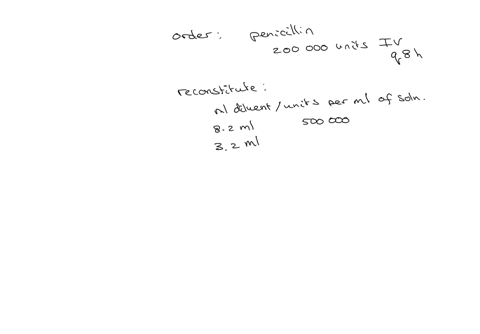 order: penicillin
200 000 units IV
q8h
reconstitute:
ml diluent/units per ml of soln.
8.2 ml 500 000
3.2 ml